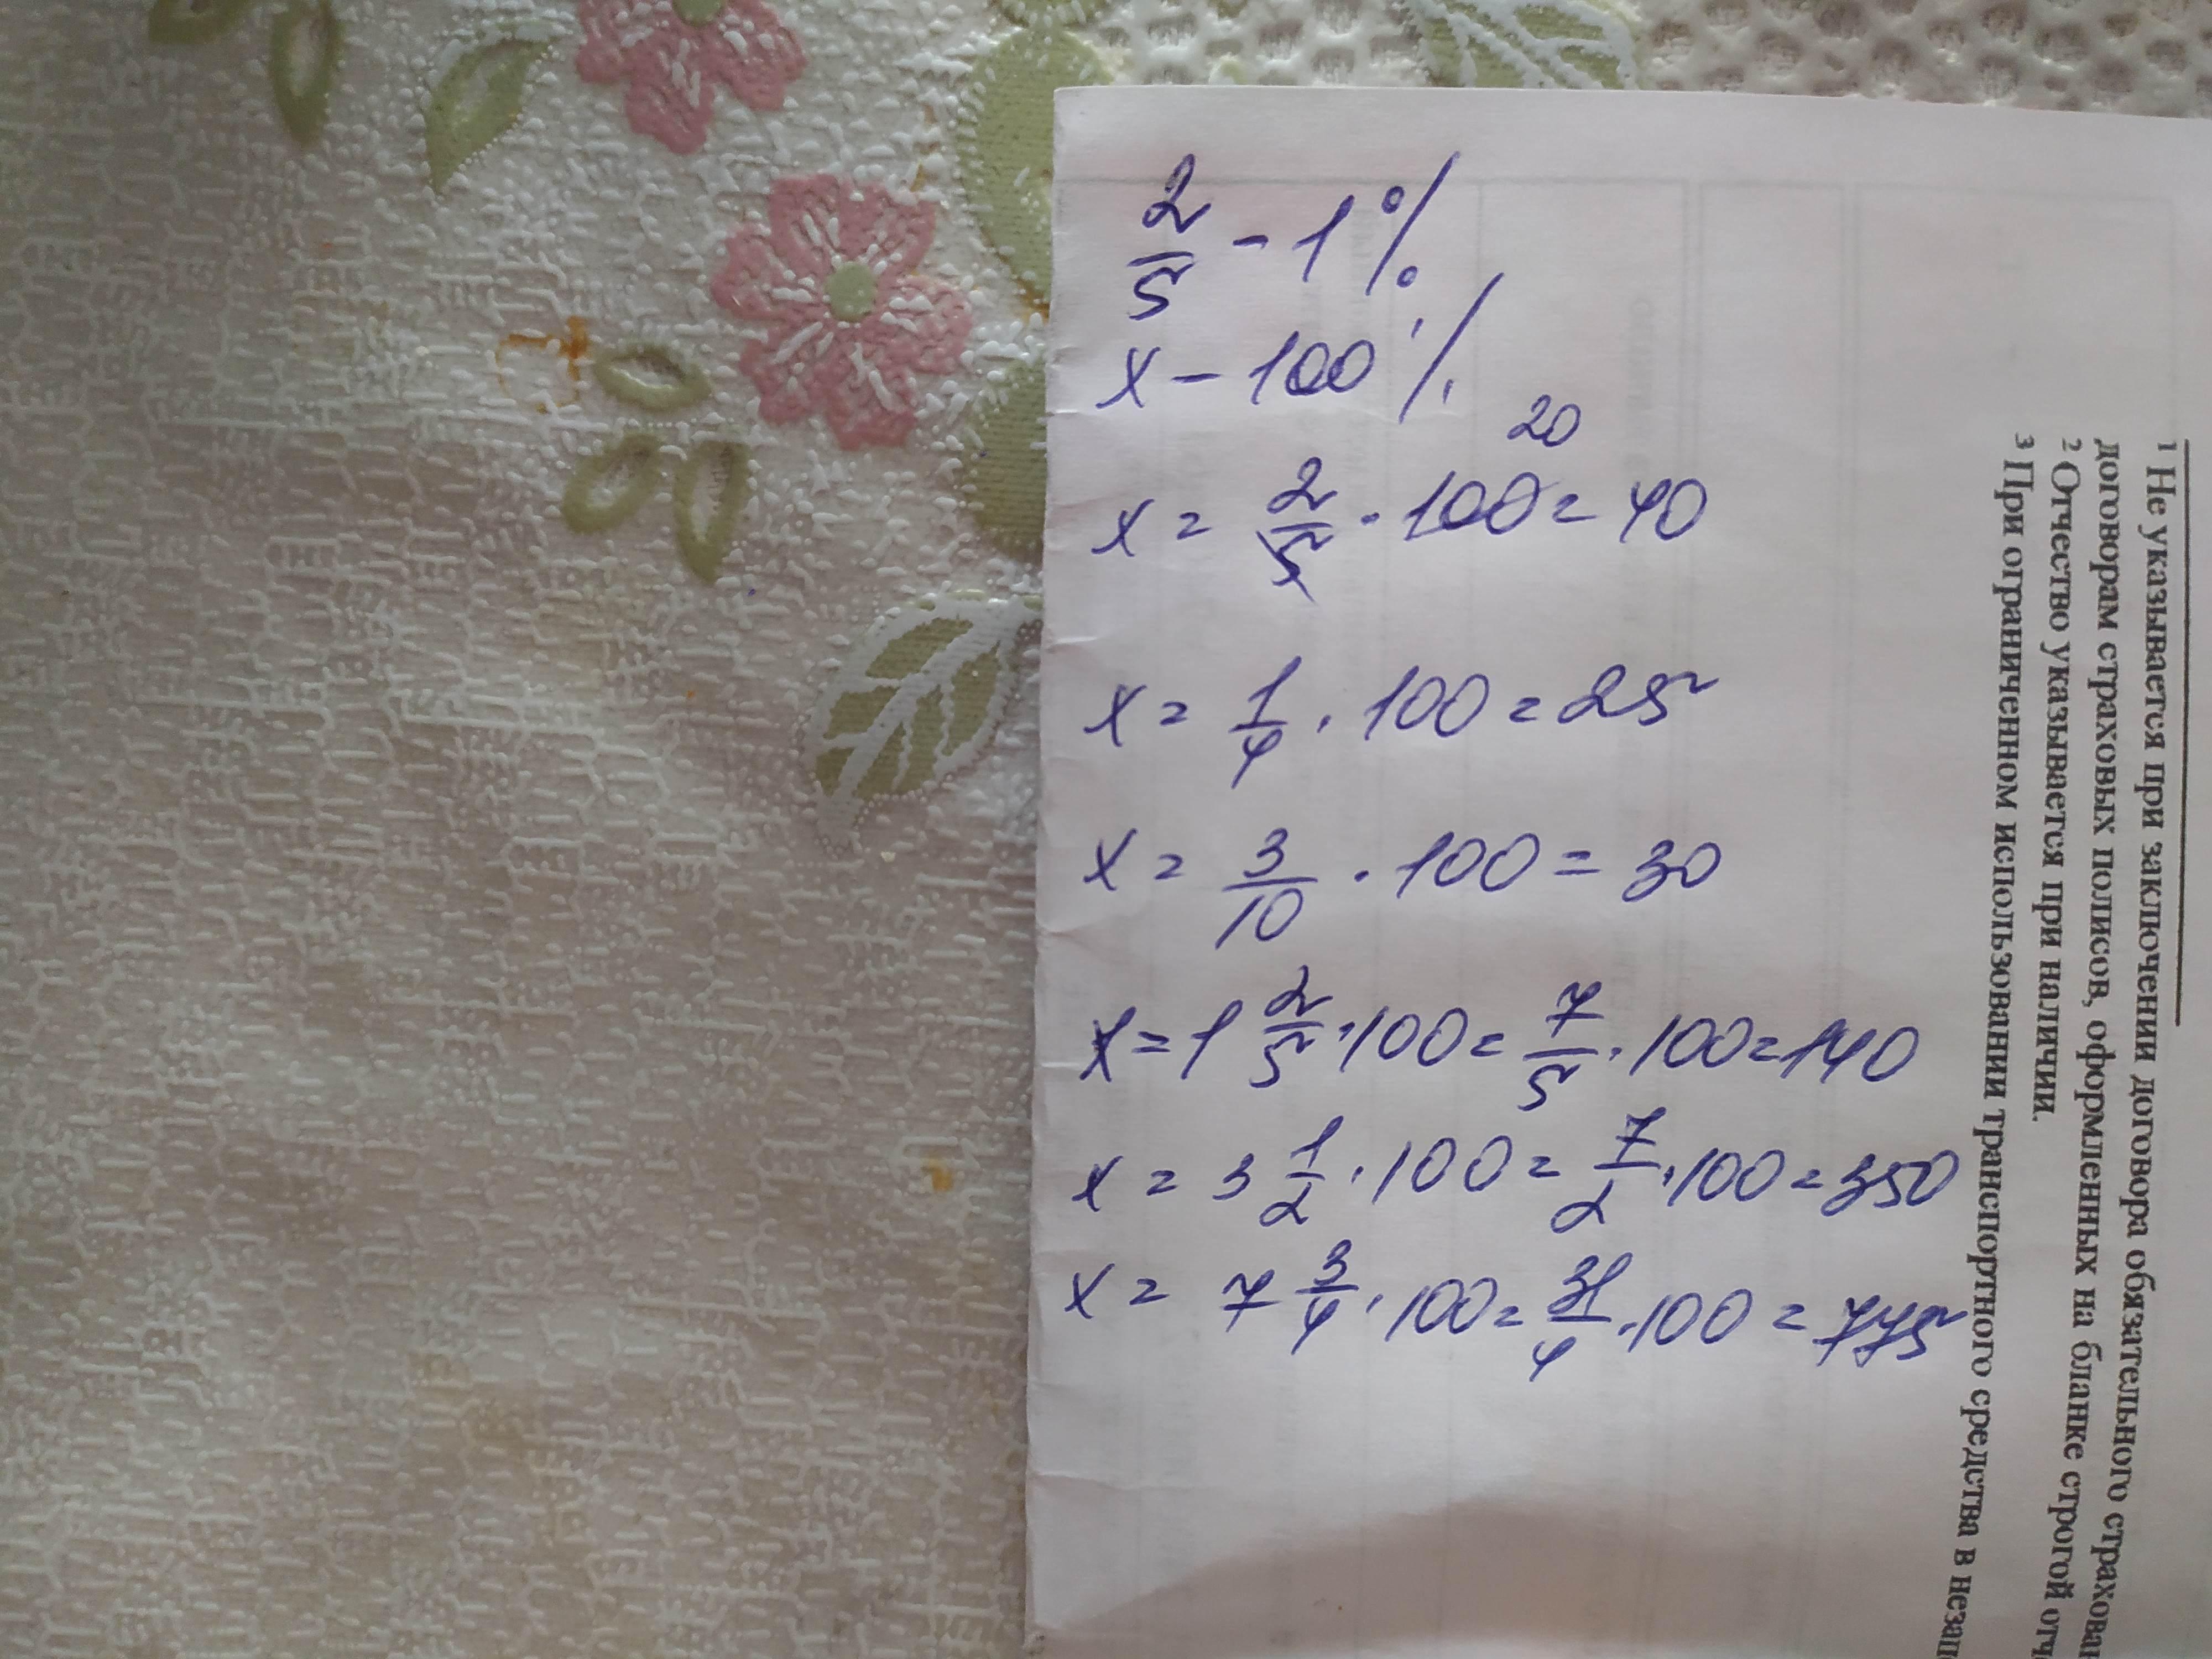 2/5 - 1%
x - 100%
20
x = 2/5 · 100 = 40
x = 1/4 · 100 = 25
x = 3/10 · 100 = 30
x = 1 2/5 · 100 = 7/5 · 100 = 140
x = 3 1/2 · 100 = 7/2 · 100 = 350
x = 7 3/4 · 100 = 31/4 · 100 = 775
1 Не указывается при заключении договора обязательного
договорам страховых полисов, оформленных на бланке строгой
2 Отчество указывается при наличии.
3 При ограниченном использовании транспортного средства в